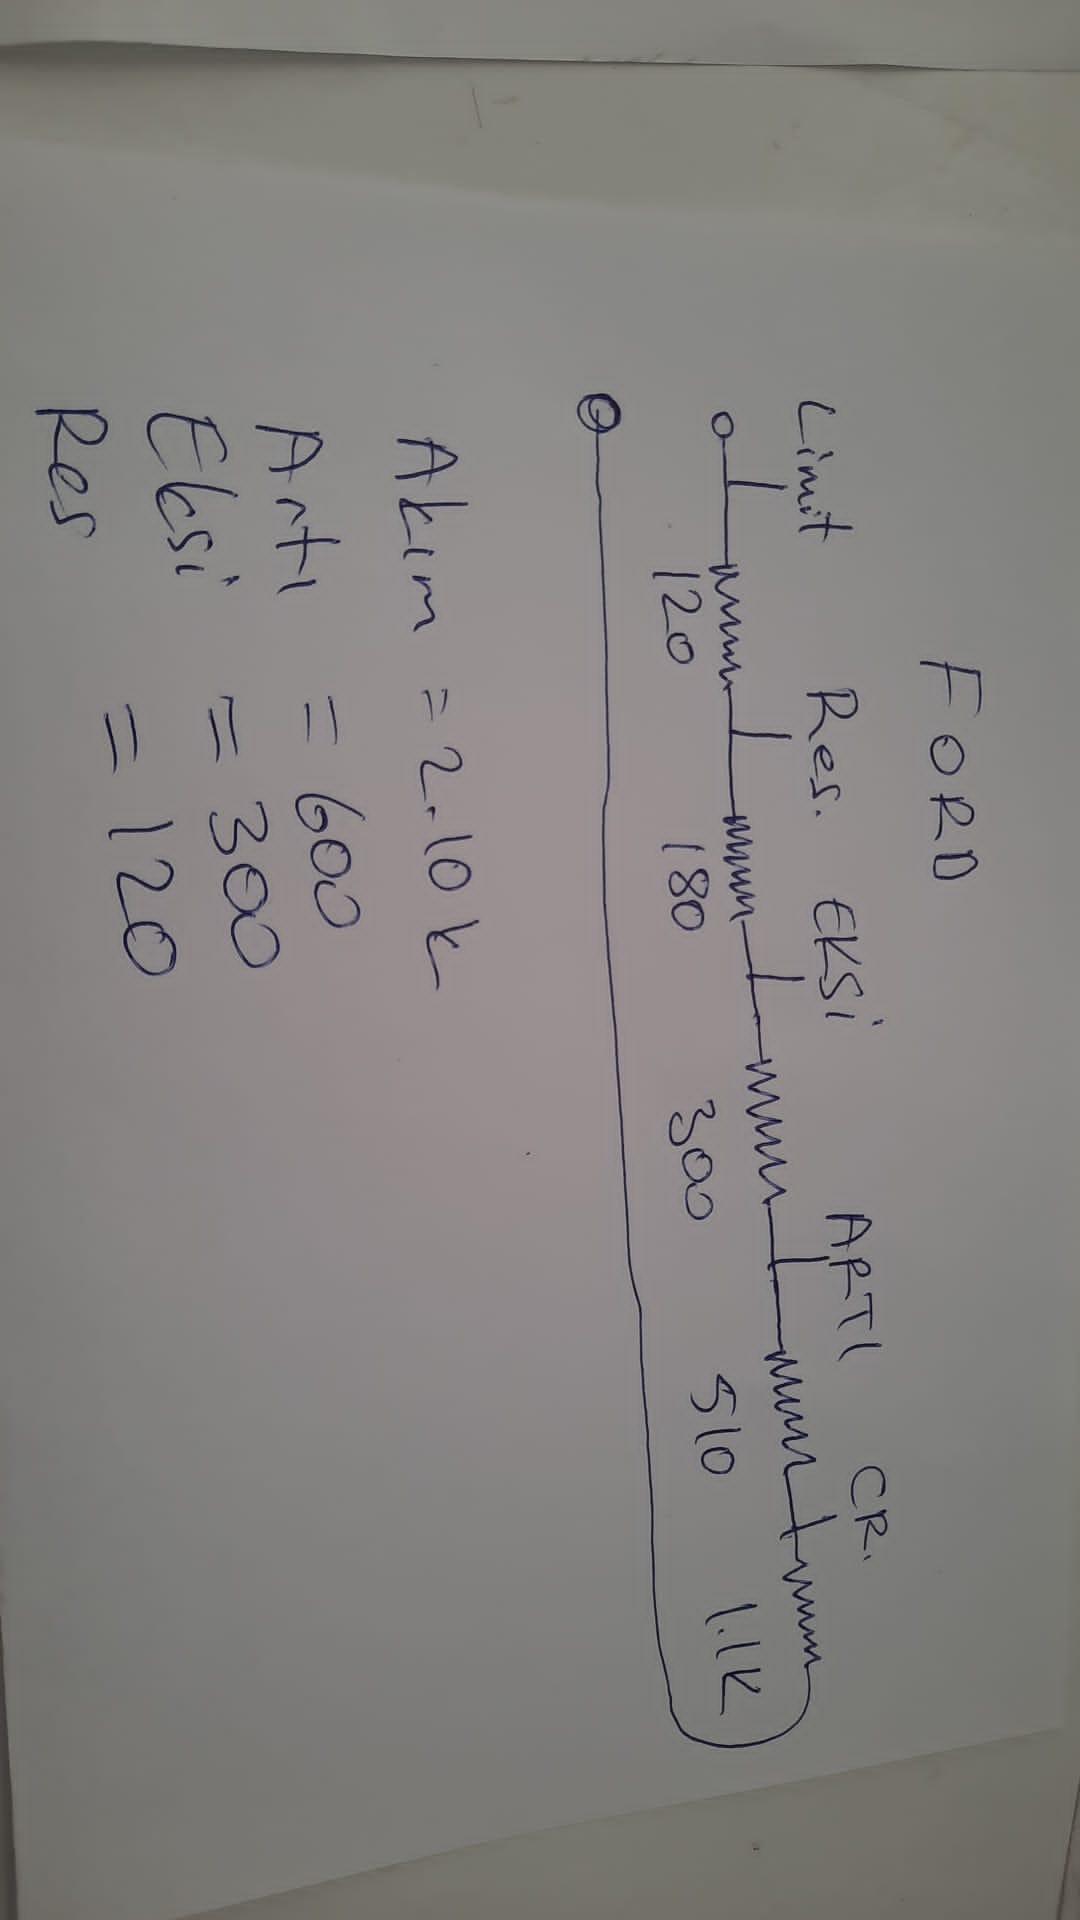 FORD
Limit Res. EKSİ ARTI CR.
120 180 300 510 1.1K
Akım = 2.10 k
Artı = 600
Eksi = 300
Res = 120